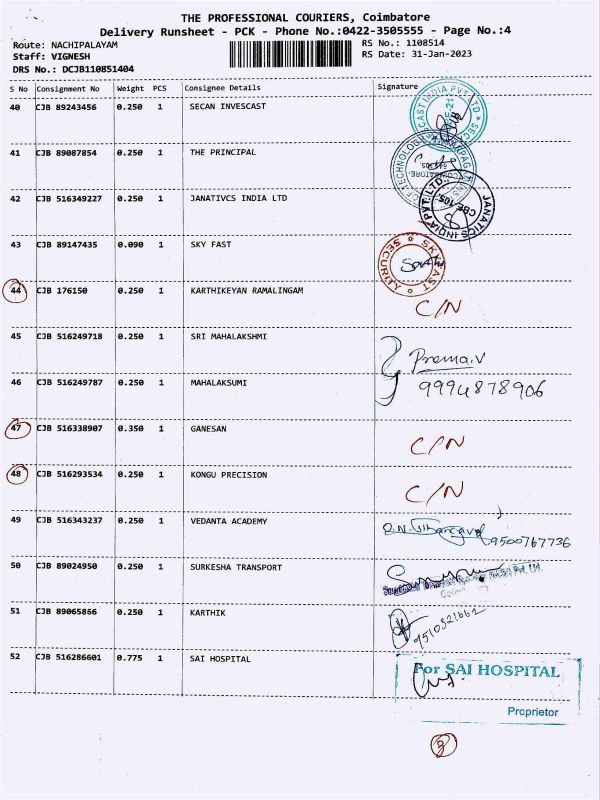 THE PROFESSIONAL COURIERS, Coimbatore
Delivery Runsheet - PCK - Phone No.:0422-3505555 - Page No.:4
Route: NACHIPALAYAM RS No.: 1108514
Staff: VIGNESH RS Date: 31-Jan-2023
DRS No.: DCJB110851404
S No Consignment No Weight PCS Consignee Details Signature
40 CJB 89243456 0.250 1 SECAN INVESCAST
41 CJB 89087854 0.250 1 THE PRINCIPAL
42 CJB 516349227 0.250 1 JANATIVCS INDIA LTD
JANATICS INDIA PVT. LTD. CBE-105
43 CJB 89147435 0.090 1 SKY FAST
SKY FAST SECURITY
44 CJB 176150 0.250 1 KARTHIKEYAN RAMALINGAM C/N
45 CJB 516249718 0.250 1 SRI MAHALAKSHMI Prema.V
46 CJB 516249787 0.250 1 MAHALAKSUMI 9994878906
47 CJB 516338907 0.350 1 GANESAN C/N
48 CJB 516293534 0.250 1 KONGU PRECISION C/N
49 CJB 516343237 0.250 1 VEDANTA ACADEMY 9500767736
50 CJB 89024950 0.250 1 SURKESHA TRANSPORT
51 CJB 89065866 0.250 1 KARTHIK 9510321661
52 CJB 516286601 0.775 1 SAI HOSPITAL For SAI HOSPITAL
Proprietor